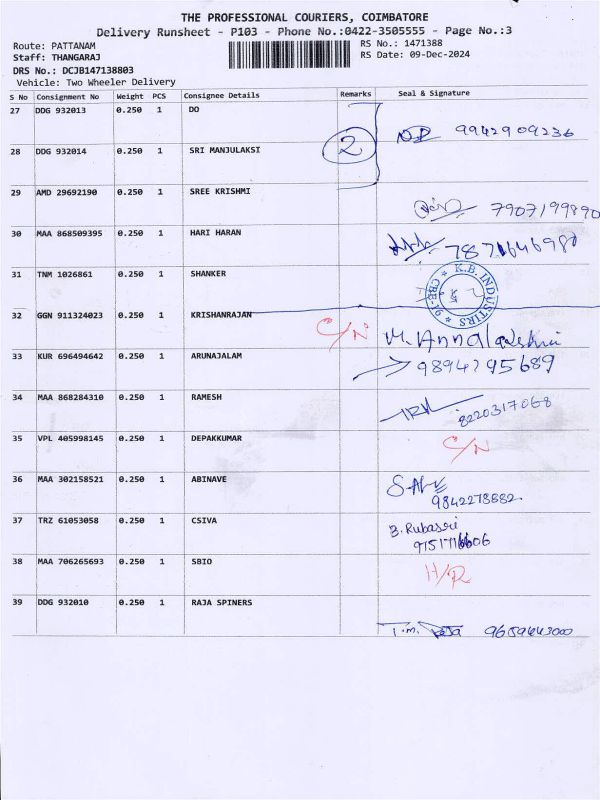 THE PROFESSIONAL COURIERS, COIMBATORE
Delivery Runsheet - P103 - Phone No.:0422-3505555 - Page No.:3
Route: PATTANAM
RS No.: 1471388
Staff: THANGARAJ
RS Date: 09-Dec-2024
DRS No.: DCJB147138803
Vehicle: Two Wheeler Delivery
S No Consignment No Weight PCS Consignee Details Remarks Seal & Signature
27 DDG 932013 0.250 1 DO
2 9942909236
28 DDG 932014 0.250 1 SRI MANJULAKSI
29 AMD 29692190 0.250 1 SREE KRISHMI
7907199890
30 MAA 868509395 0.250 1 HARI HARAN
7871646980
31 TNM 1026861 0.250 1 SHANKER
K.B. INDUSTIRS
CBE-16
32 GGN 911324023 0.250 1 KRISHANRAJAN
C/N M. Annalakshmi
33 KUR 696494642 0.250 1 ARUNAJALAM
9894795689
34 MAA 868284310 0.250 1 RAMESH
8220317068
35 VPL 405998145 0.250 1 DEPAKKUMAR
C/N
36 MAA 302158521 0.250 1 ABINAVE
9842278882
37 TRZ 61053058 0.250 1 CSIVA
B. Rubasri
38 MAA 706265693 0.250 1 SBIO
H/R
39 DDG 932010 0.250 1 RAJA SPINERS
T.M. Raja 9659643000